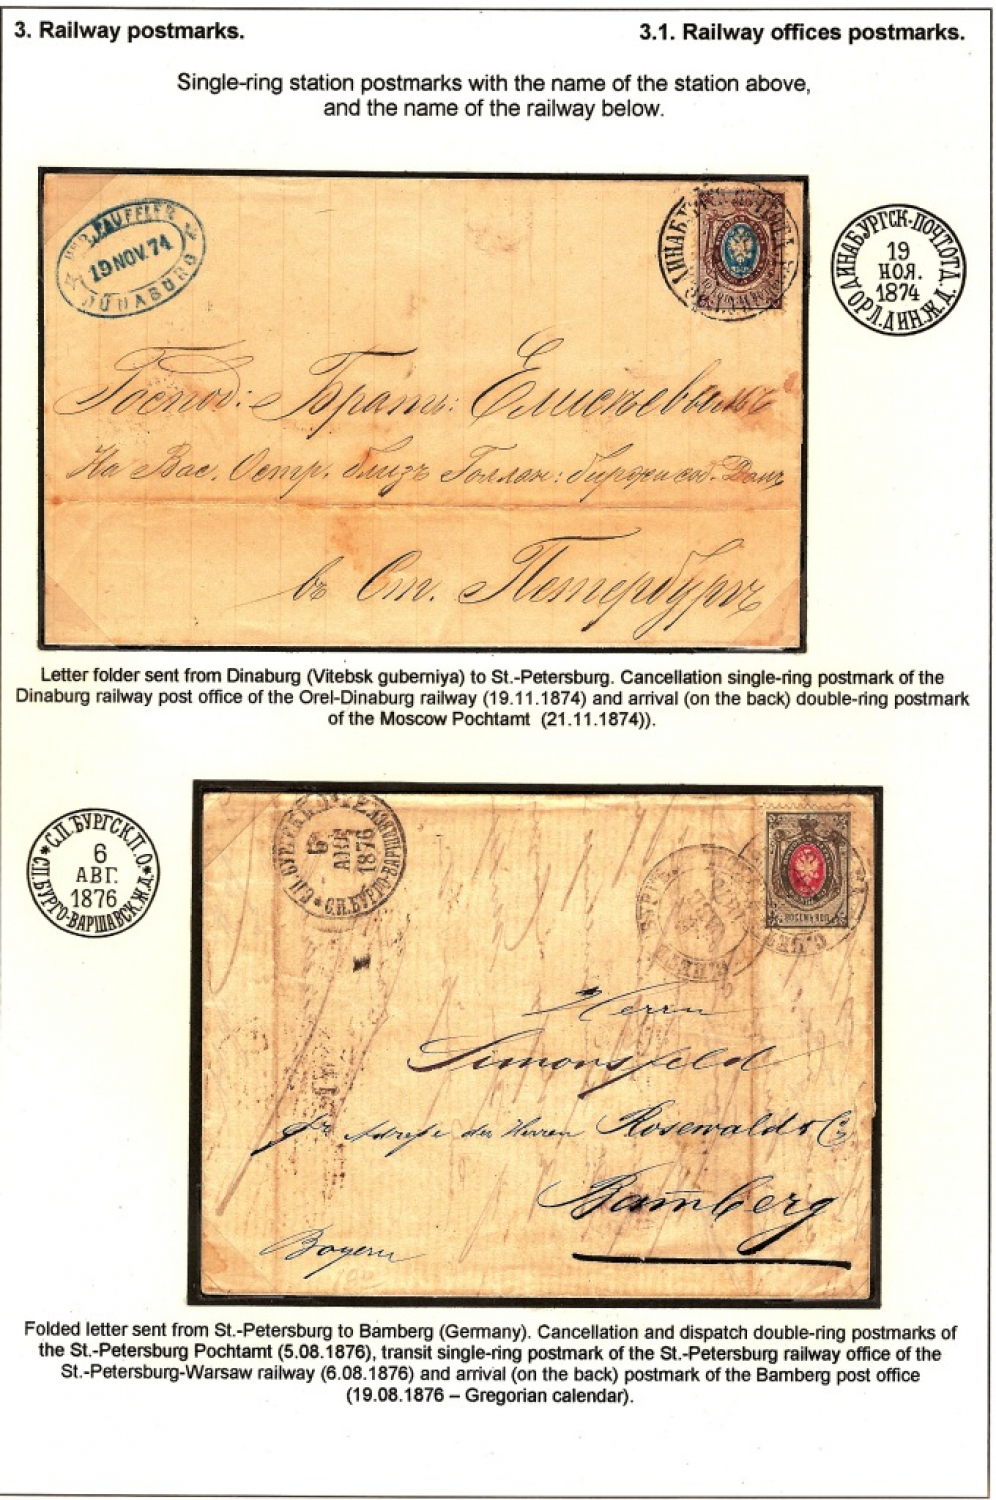 3. Railway postmarks.
3.1. Railway offices postmarks.
Single-ring station postmarks with the name of the station above,
and the name of the railway below.
19 NOV. 74
DÜNABURG
ДИНАБУРГСК-ПОЧТОТД.
19
НОЯ.
1874
ОРЛ.ДИН.Ж.Д.
Господ: Брат: Елисѣевымъ
На Вас. Остр. близъ Голлан: биржи соб. Домъ
въ Ст. Петербургъ
Letter folder sent from Dinaburg (Vitebsk guberniya) to St.-Petersburg. Cancellation single-ring postmark of the
Dinaburg railway post office of the Orel-Dinaburg railway (19.11.1874) and arrival (on the back) double-ring postmark
of the Moscow Pochtamt (21.11.1874)).
С.П.БУРГСК.П.О.
6
АВГ.
1876
СП.БУРГО-ВАРШАВСК.Ж.Д.
6
АВГ
1876
Herrn
Simonsfeld
pr Adresse der Herren Rosewald & Co
Bamberg
Bayern
Folded letter sent from St.-Petersburg to Bamberg (Germany). Cancellation and dispatch double-ring postmarks of
the St.-Petersburg Pochtamt (5.08.1876), transit single-ring postmark of the St.-Petersburg railway office of the
St.-Petersburg-Warsaw railway (6.08.1876) and arrival (on the back) postmark of the Bamberg post office
(19.08.1876 – Gregorian calendar).